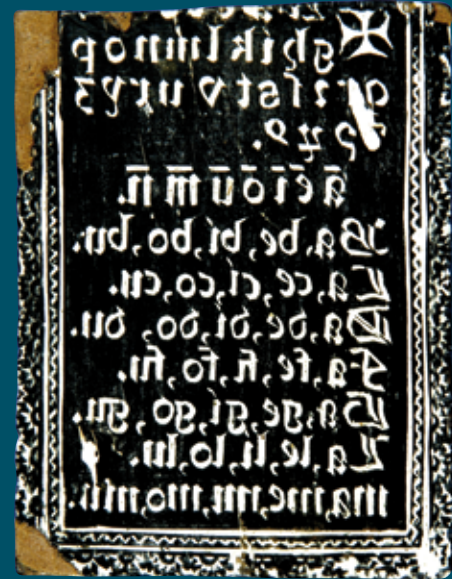 ✠ ghiklmnop
qrſstvuxyz
ā ē ī ō ū m̄ n̄.
Ba, be, bi, bo, bu.
Ca, ce, ci, co, cu.
Da, de, di, do, du.
Fa, fe, fi, fo, fu.
Ga, ge, gi, go, gu.
La, le, li, lo, lu.
ma, me, mi, mo, mu.